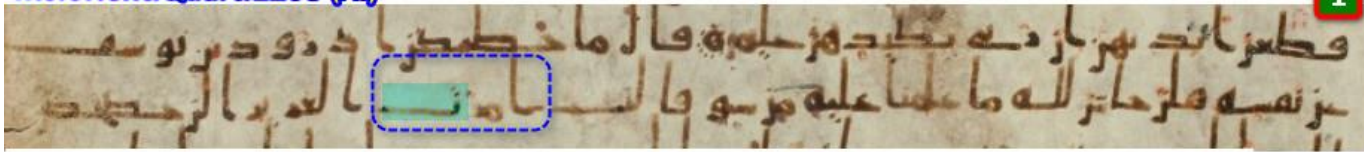 1
قطعن ايديهن ان ربى بكيدهن عليم قال ما خطبكن اذ رودتن يوسف
عن نفسه قلن حاش لله ما علمنا عليه من سو قالت امرات العزيز الن حصحص